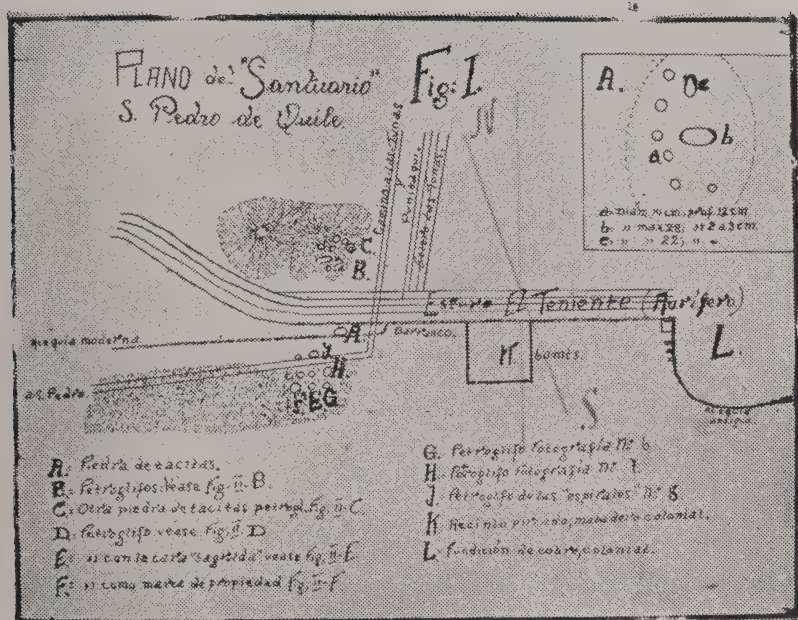 PLANO del "Santuario"
S. Pedro de Quile.
Fig: I.
N
A.
e
b
a
a. diám. 14 cm. prof. 12 cm
b. " max 28; " 2 a 3 cm
e. " " 22; " "
Camino a Las Tunas
y
Punitaqui.
Estero Las Tunas.
C
B.
Estero El Teniente (Aurífero)
acequia moderna
A.
Barranco.
J
H
K
60 mts.
L
a S. Pedro.
F E G
S
acequia
antigua
A: Piedra de tacitas.
B: Petroglifos. Vease fig. II-B.
C: Otra piedra de tacitas petrogl. Fig. II-C
D: Petroglifo vease Fig. II-D
E: " con la cara "sagrada" vease fig. II-E
F: " como marca de propiedad fig. II-F
G. Petroglifo fotografía Nº 6
H: Petroglifo fotografía Nº 7.
J: Petroglifo de las "espirales" Nº 8.
K Recinto matadero colonial.
L: Fundición de cobre, colonial.